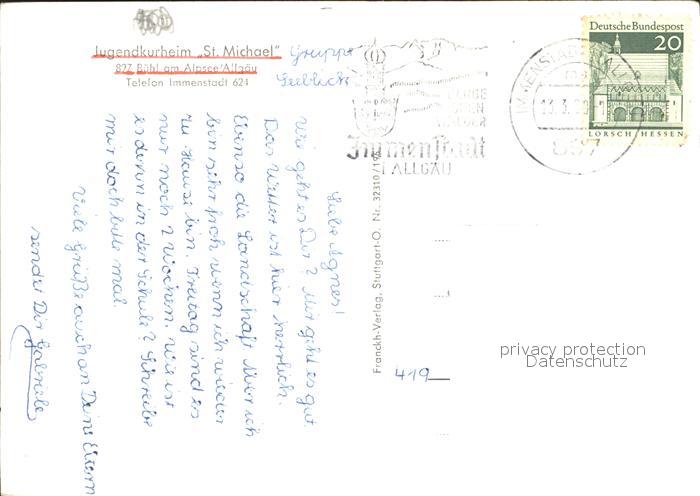 Jugendkurheim „St. Michael"
897 Bühl am Alpsee/Allgäu
Telefon Immenstadt 624
Gruppe
Seeblick
Liebe Agnes!
Wie geht es Dir? Mir geht es gut.
Das Wetter ist hier herrlich.
Ebenso die Landschaft. Aber ich
bin sehr froh wenn ich wieder
zu Hause bin. Freitag sind es
nur noch 2 Wochen. Wie ist
es denn in der Schule? Schreibe
mir doch bitte mal.
Viele Grüße auch an Deine Eltern
sendet Dir Gabriele
Franckh-Verlag, Stuttgart-O. Nr. 32310/
419
BERGE
SEEN
WÄLDER
Immenstadt
I ALLGÄU
IMMENSTADT
13.3.
897
Deutsche Bundespost
20
LORSCH/HESSEN
privacy protection
Datenschutz